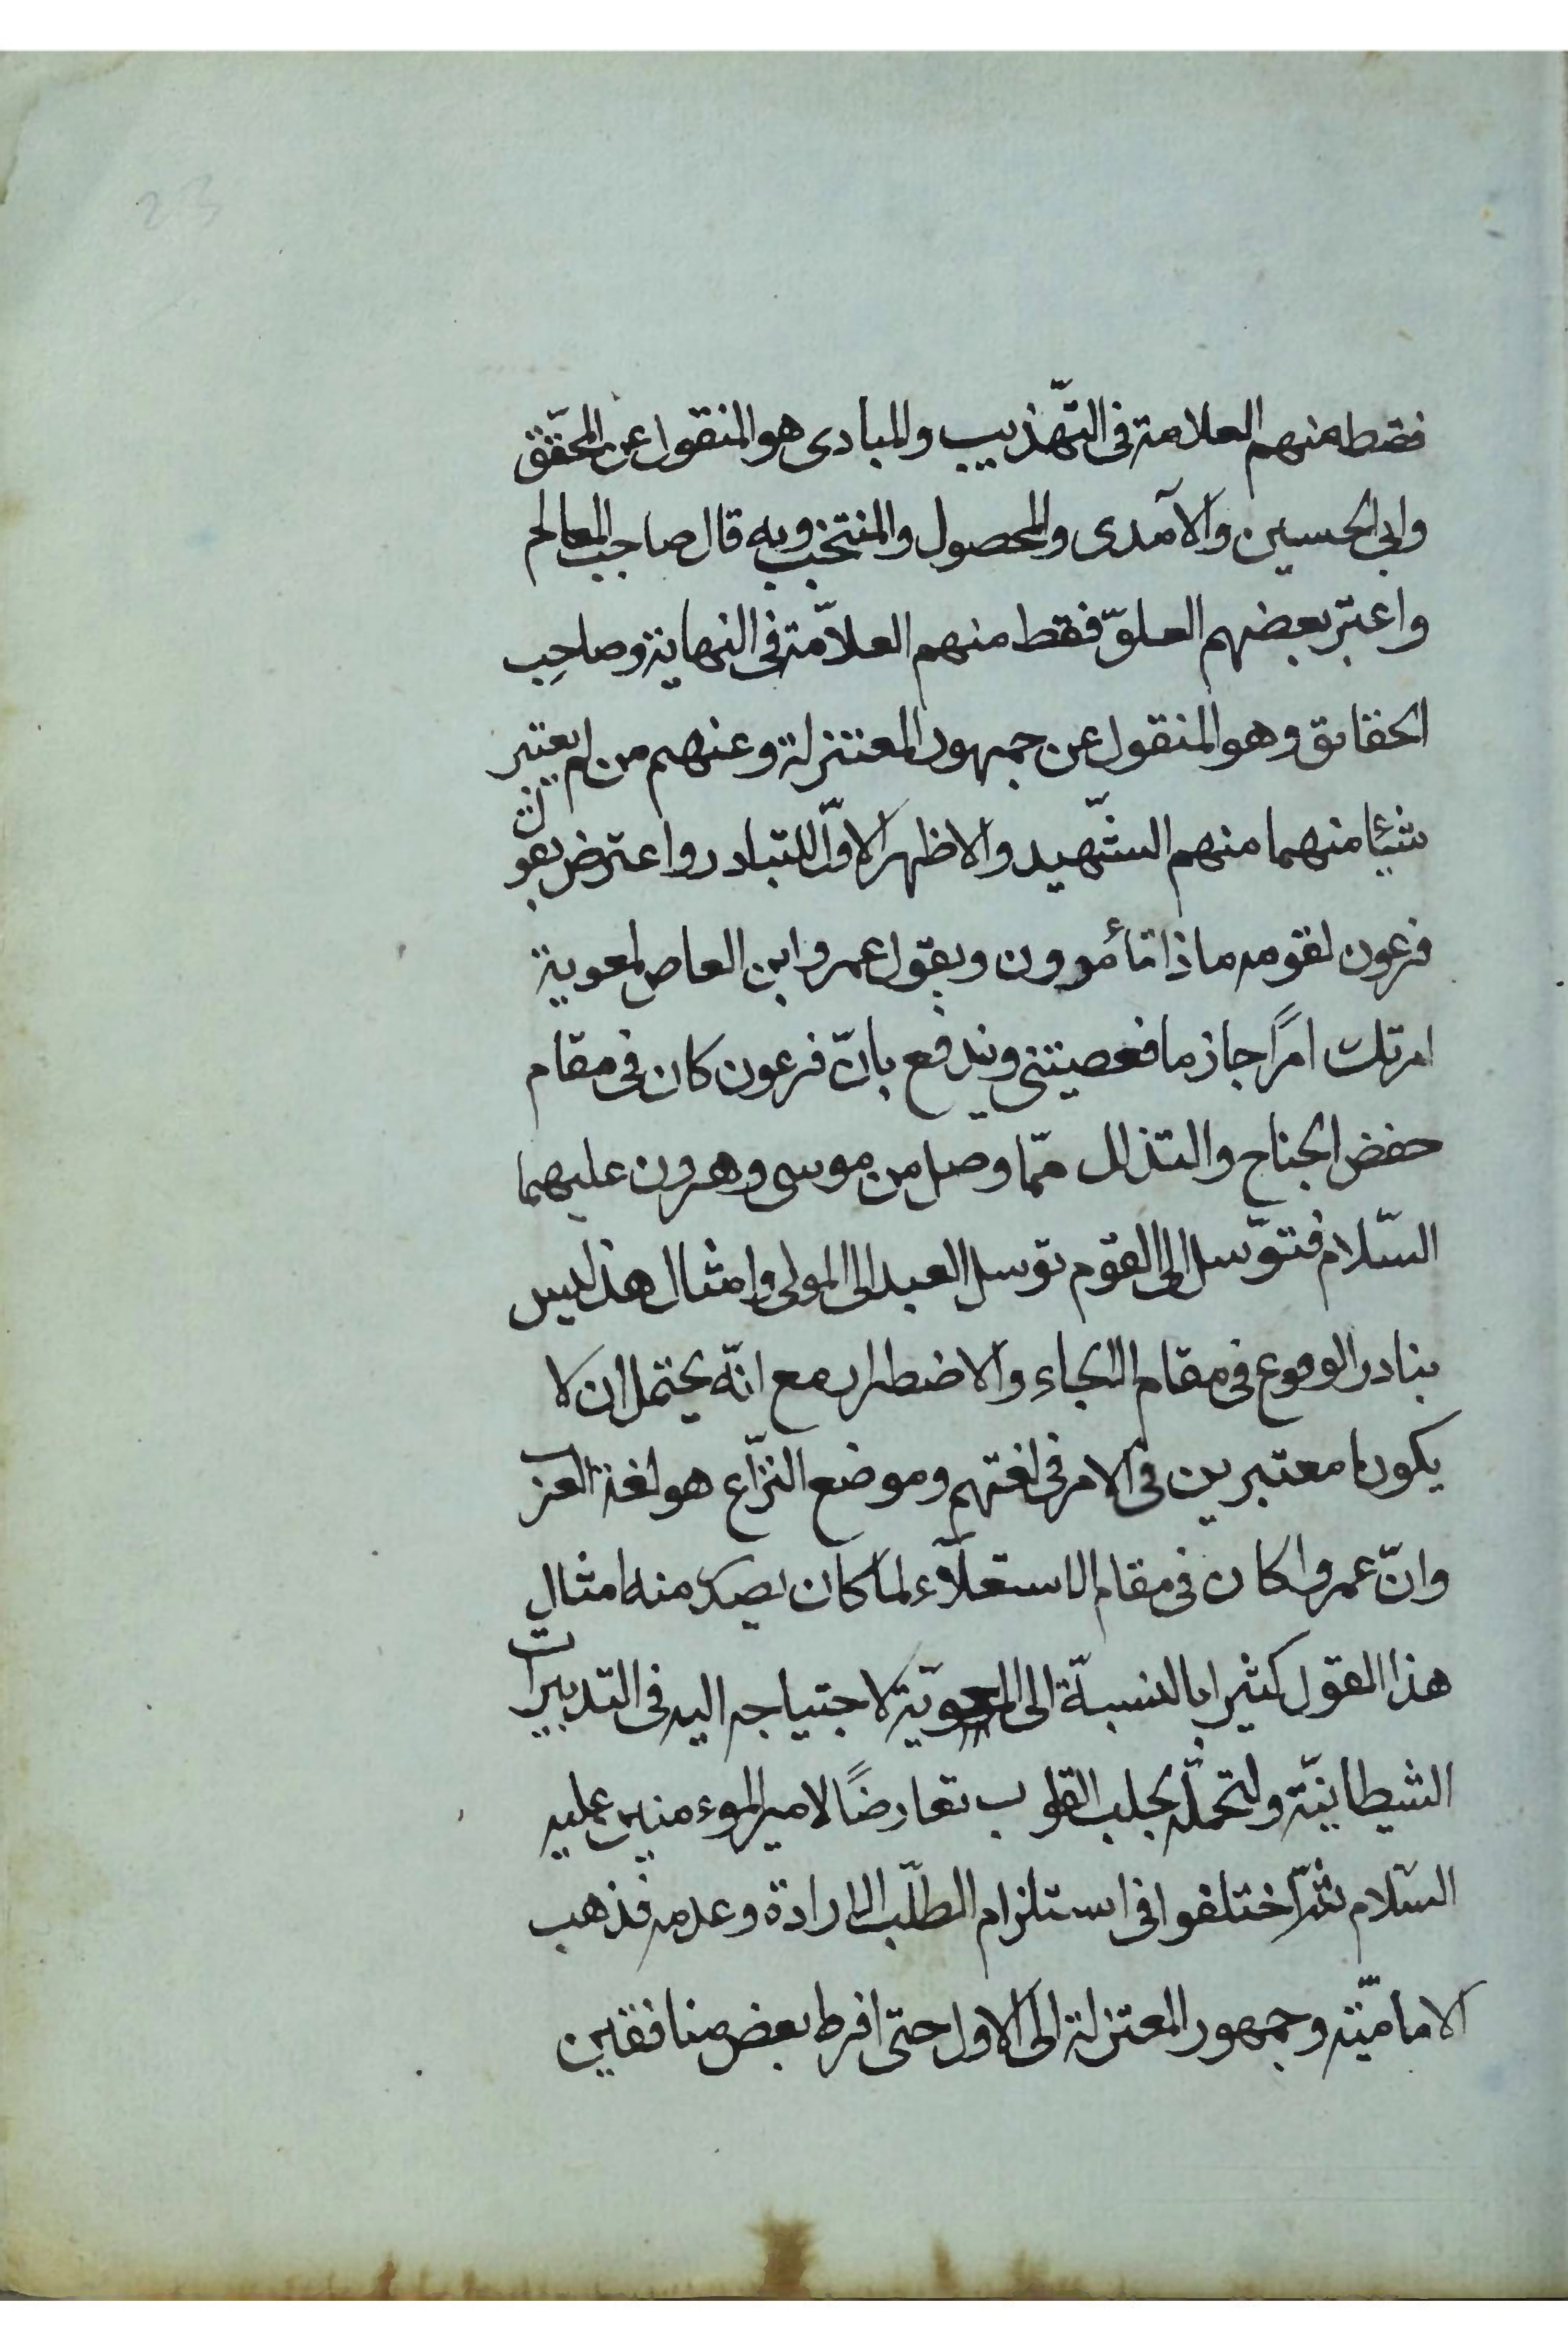 23
فقط منهم العلامة فى التّهذيب والمبادى هو المنقول عن المحقّق
وابى الحسين والآمدى والمحصول والمنتخب وبه قال صاحب المعالم
واعتبر بعضهم العلوّ فقط منهم العلاّمة فى النهاية وصاحِب
الحقائق وهو المنقول عن جمهور المعتزلة وعنهم من لم يعتبر
شيئا منهما منهم الشّهيد والاظهر الاوّل للتبادر واعترض بقول
فرعون لقومه ماذا تأمرون وبقول عمرو ابن العاص لمعوية
امرتك امرًا جازما فعصيتنى ويندفع بانّ فرعون كان فى مقام
حفض الجناح والتذلل ممّا وصل من موسى وهرون عليهما
السّلام فتوّسل الى القوم توسل العبد الى المولى وامثال هذا ليس
بنادر الوقوع فى مقام التجاء والاضطرار مع انّه يحتمل ان لا
يكونا معتبرين فى الامر فى لغتهم وموضع النزّاع هو لغة العرب
وانّ عمروا كان فى مقام الاستعلآء لما كان يصدر منه امثال
هذا القول كثيرا بالنسبة الى المعويّة لاحتياجه اليه فى التدبيرات
الشيطانيّة ولتحمّله بجلب القلوب تعارضًا لامير الموءمنين عليه
السّلام ثمّ اختلفوا فى استلزام الطّلب الارادة وعدمه فذهب
الاماميّة وجمهور المعتزلة الى الاول حتى افرط بعض منا فقين